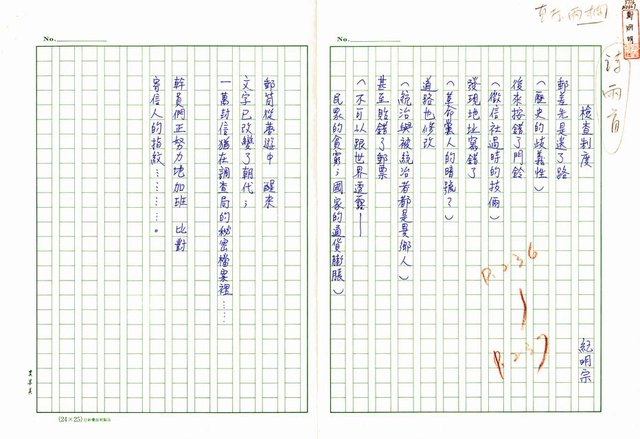 詩兩首
鄭明娳
No.
檢查制度
紀明宗
郵差先是迷了路
(歷史的歧義性)
後來按錯了門鈴
(徵信社過時的技倆)
發現地址寫錯了
(革命黨人的暗號?)
道路也修改
(統治與被統治者都是異鄉人)
甚至貼錯了郵票
(不可以跟世界透露——
民眾的貧窮;國家的通貨膨脹)
P.236
P.237
No.
郵筒從夢遊中 醒來
文字已改變了朝代;
一萬封信猶在調查局的秘密檔案裡……
幹員們正努力地加班 比對
寄信人的指紋………。
(24×25)